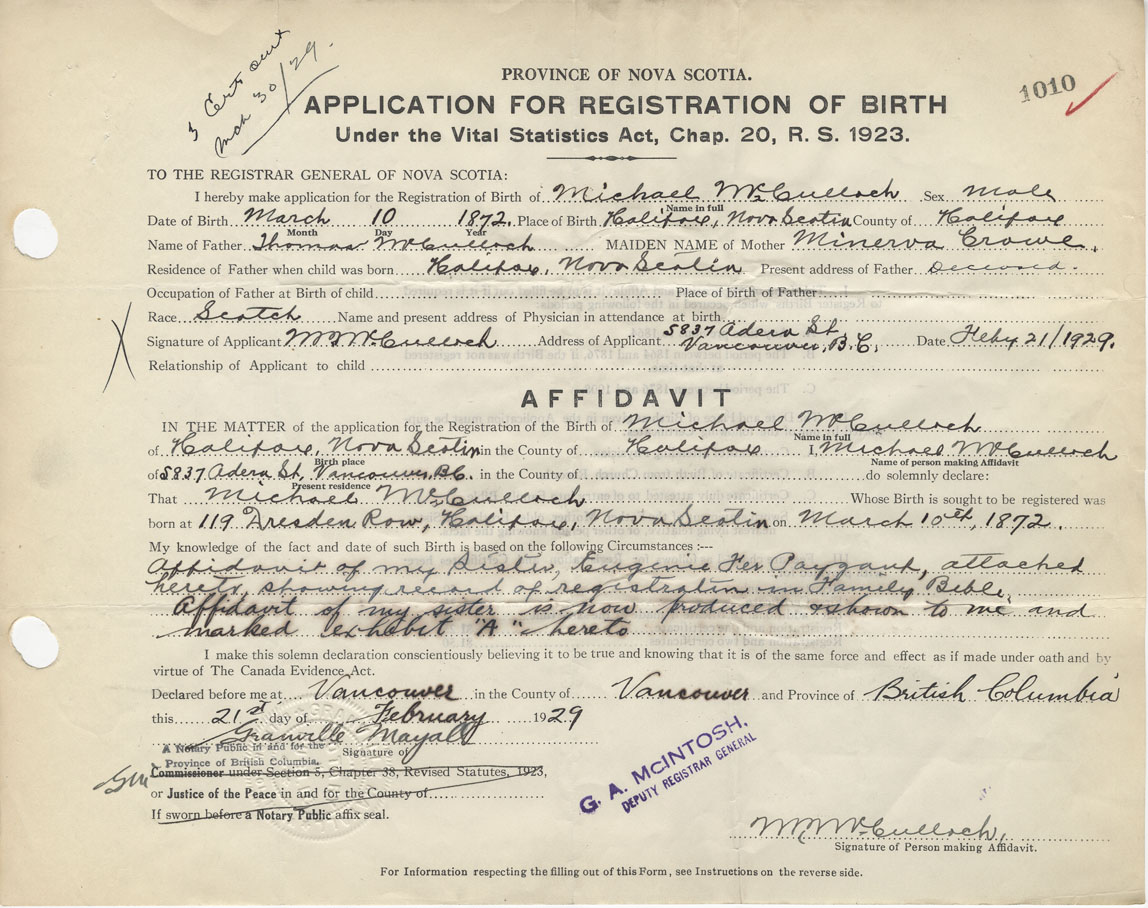 3 Certs out
Mch 30/29.
1010
PROVINCE OF NOVA SCOTIA.
APPLICATION FOR REGISTRATION OF BIRTH
Under the Vital Statistics Act, Chap. 20, R. S. 1923.
TO THE REGISTRAR GENERAL OF NOVA SCOTIA:
I hereby make application for the Registration of Birth of Michael McCulloch Sex Male
Name in full
Date of Birth March 10 1872. Place of Birth Halifax, Nova Scotia County of Halifax
Month Day Year
Name of Father Thomas McCulloch MAIDEN NAME of Mother Minerva Crowe,
Residence of Father when child was born Halifax, Nova Scotia Present address of Father Deceased.
Occupation of Father at Birth of child Place of birth of Father
Race Scotch Name and present address of Physician in attendance at birth
Signature of Applicant M McCulloch Address of Applicant 5837 Adera St, Vancouver, B.C. Date Feby 21/1929.
Relationship of Applicant to child
AFFIDAVIT
IN THE MATTER of the application for the Registration of the Birth of Michael McCulloch
Name in full
of Halifax, Nova Scotia in the County of Halifax I, Michael McCulloch
Birth place Name of person making Affidavit
of 5837 Adera St, Vancouver, B.C. in the County of do solemnly declare:
Present residence
That Michael McCulloch Whose Birth is sought to be registered was
born at 119 Dresden Row, Halifax, Nova Scotia on March 10th, 1872.
My knowledge of the fact and date of such Birth is based on the following Circumstances :---
Affidavit of my Sister, Eugenie Fer Paygant, attached
hereto, showing record of registration in Family Bible.
Affidavit of my sister is now produced & shown to me and
marked exhibit "A" hereto
I make this solemn declaration conscientiously believing it to be true and knowing that it is of the same force and effect as if made under oath and by
virtue of The Canada Evidence Act.
Declared before me at Vancouver in the County of Vancouver and Province of British Columbia
this 21st day of February 1929
Granville Mayall
A Notary Public in and for the Signature of
Province of British Columbia.
GM Commissioner under Section 5, Chapter 38, Revised Statutes, 1923,
or Justice of the Peace in and for the County of
If sworn before a Notary Public affix seal.
G. A. McINTOSH.
DEPUTY REGISTRAR GENERAL
M McCulloch,
Signature of Person making Affidavit.
For Information respecting the filling out of this Form, see Instructions on the reverse side.